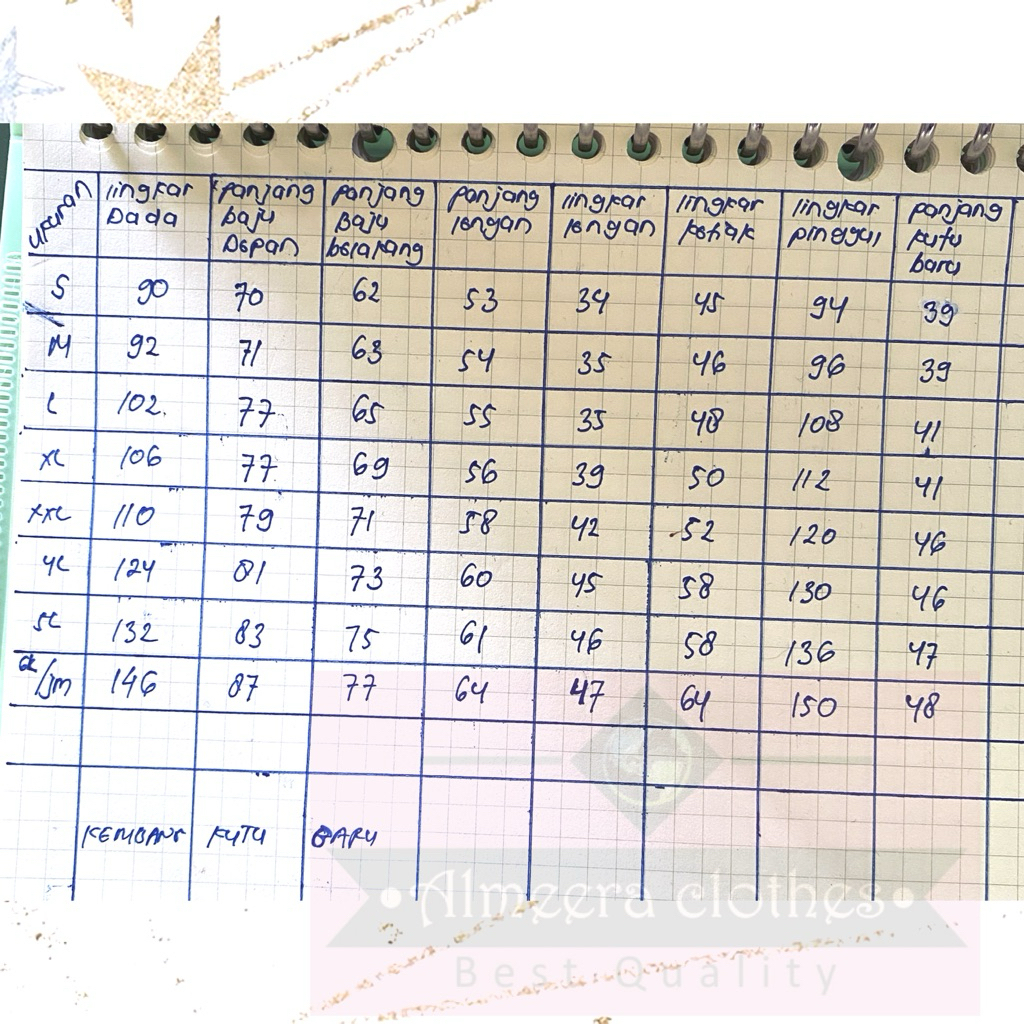 ukuran lingkar Dada panjang baju Depan panjang Baju belakang panjang lengan lingkar lengan lingkar ketiak lingkar pinggul panjang kutu baru
S 90 70 62 53 34 45 94 39
M 92 71 63 54 35 46 96 39
L 102 77 65 55 35 48 108 41
XL 106 77 69 56 39 50 112 41
XXL 110 79 71 58 42 52 120 46
4L 124 81 73 60 45 58 130 46
5L 132 83 75 61 46 58 136 47
6L/Jm 146 87 77 64 47 64 150 48
KEMBANG KUTU BARU
Almeera clothes
Best Quality